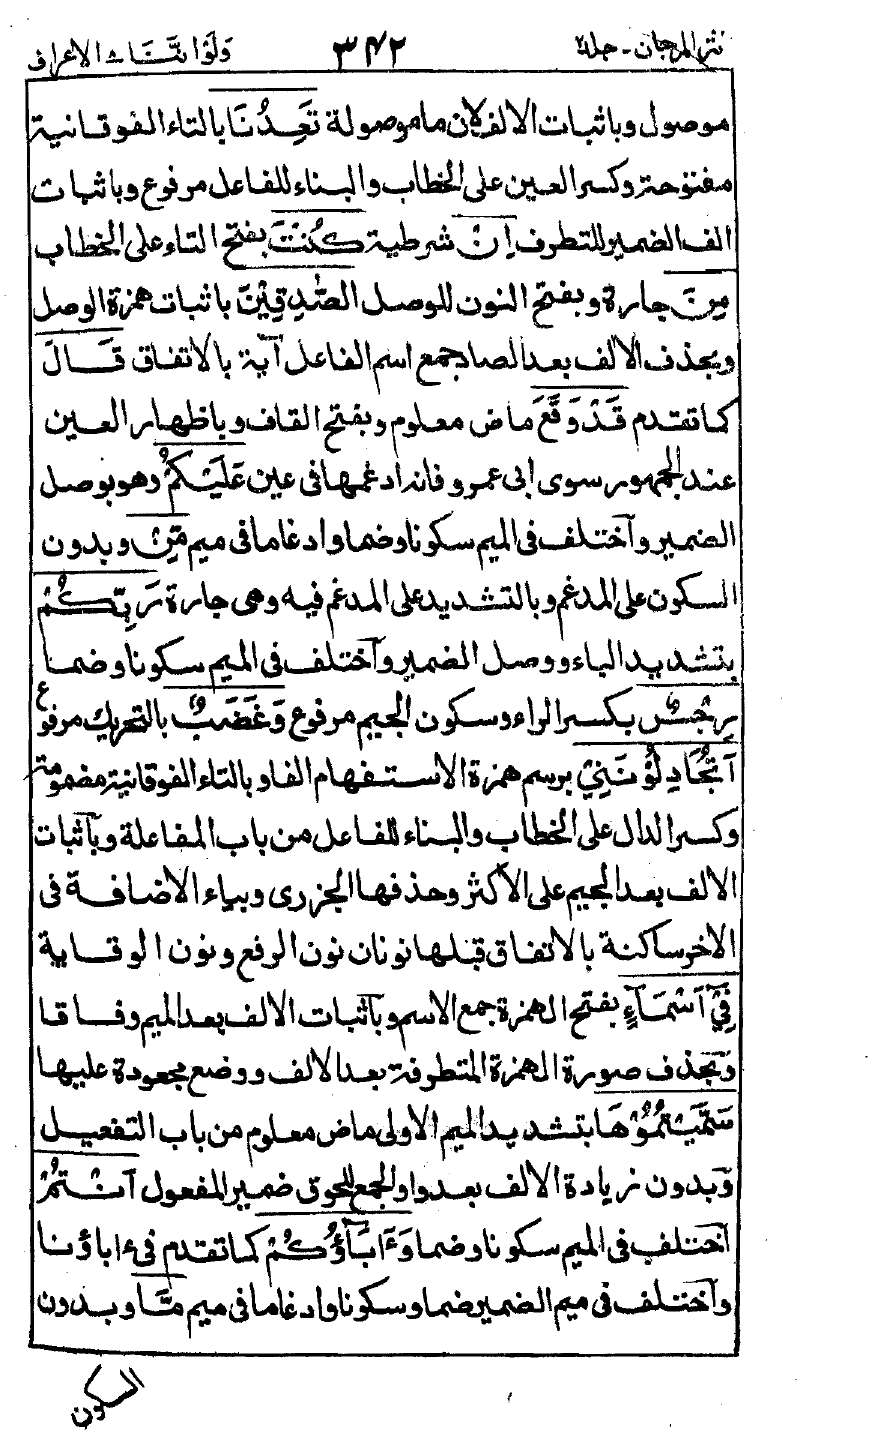 نثر المرجان - جلد ٢ ٣٤٢ ولواننا ٨ الاعراف
موصول وباثبات الالف لان ما موصولة تَعِدُنَا بالتاء الفوقانية
مفتوحة وكسر العين على الخطاب والبناء للفاعل مرفوع وباثبات
الف الضمير للتطرف اِنْ شرطية كُنْتَ بفتح التاء على الخطاب
مِنَ جارة وبفتح النون للوصل الصّٰدِقِيْنَ باثبات همزة الوصل
وبحذف الالف بعد الصاد جمع اسم الفاعل آية بالاتفاق قَالَ
كما تقدم قَدْ وَقَعَ ماض معلوم وبفتح القاف وباظهار العين
عند الجمهور سوى ابى عمرو فانه ادغمها فى عين عَلَيْكُمْ وهو بوصل
الضمير واختلف فى الميم سكونا وضما وادغاما فى ميم مِّنْ وبدون
السكون على المدغم وبالتشديد على المدغم فيه وهى جارة رَبِّكُمْ
بتشديد الباء ووصل الضمير واختلف فى الميم سكونا وضما
رِجْسٌ بكسر الراء وسكون الجيم مرفوع وَغَضَبٌ بالتحريك مرفوع
اَتُجَادِلُوْنَنِيْ برسم همزة الاستفهام الفا وبالتاء الفوقانية مضمومة
وكسر الدال على الخطاب والبناء للفاعل من باب المفاعلة وباثبات
الالف بعد الجيم على الاكثر وحذفها الجزرى وبياء الاضافة فى
الاخر ساكنة بالاتفاق قبلها نونان نون الرفع ونون الوقاية
فِيْ اَسْمَآءٍ بفتح الهمزة جمع الاسم وباثبات الالف بعد الميم وفاقا
وبحذف صورة الهمزة المتطرفة بعد الالف ووضع مجعودة عليها
سَمَّيْتُمُوْهَا بتشديد الميم الاولى ماض معلوم من باب التفعيل
وبدون زيادة الالف بعد واو الجمع للحوق ضمير المفعول اَنْتُمْ
اختلف فى الميم سكونا وضما وَءَابَآؤُكُمْ كما تقدم فى ءاباؤنا
واختلف فى ميم الضمير ضما وسكونا وادغاما فى ميم مَّا وبدون
السكون